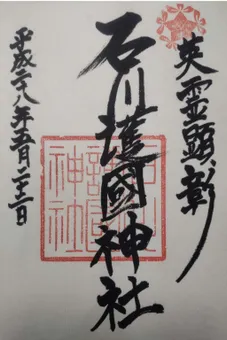 英霊顕彰
石川護國神社
石川
護國
神社
平成二十八年五月二十二日